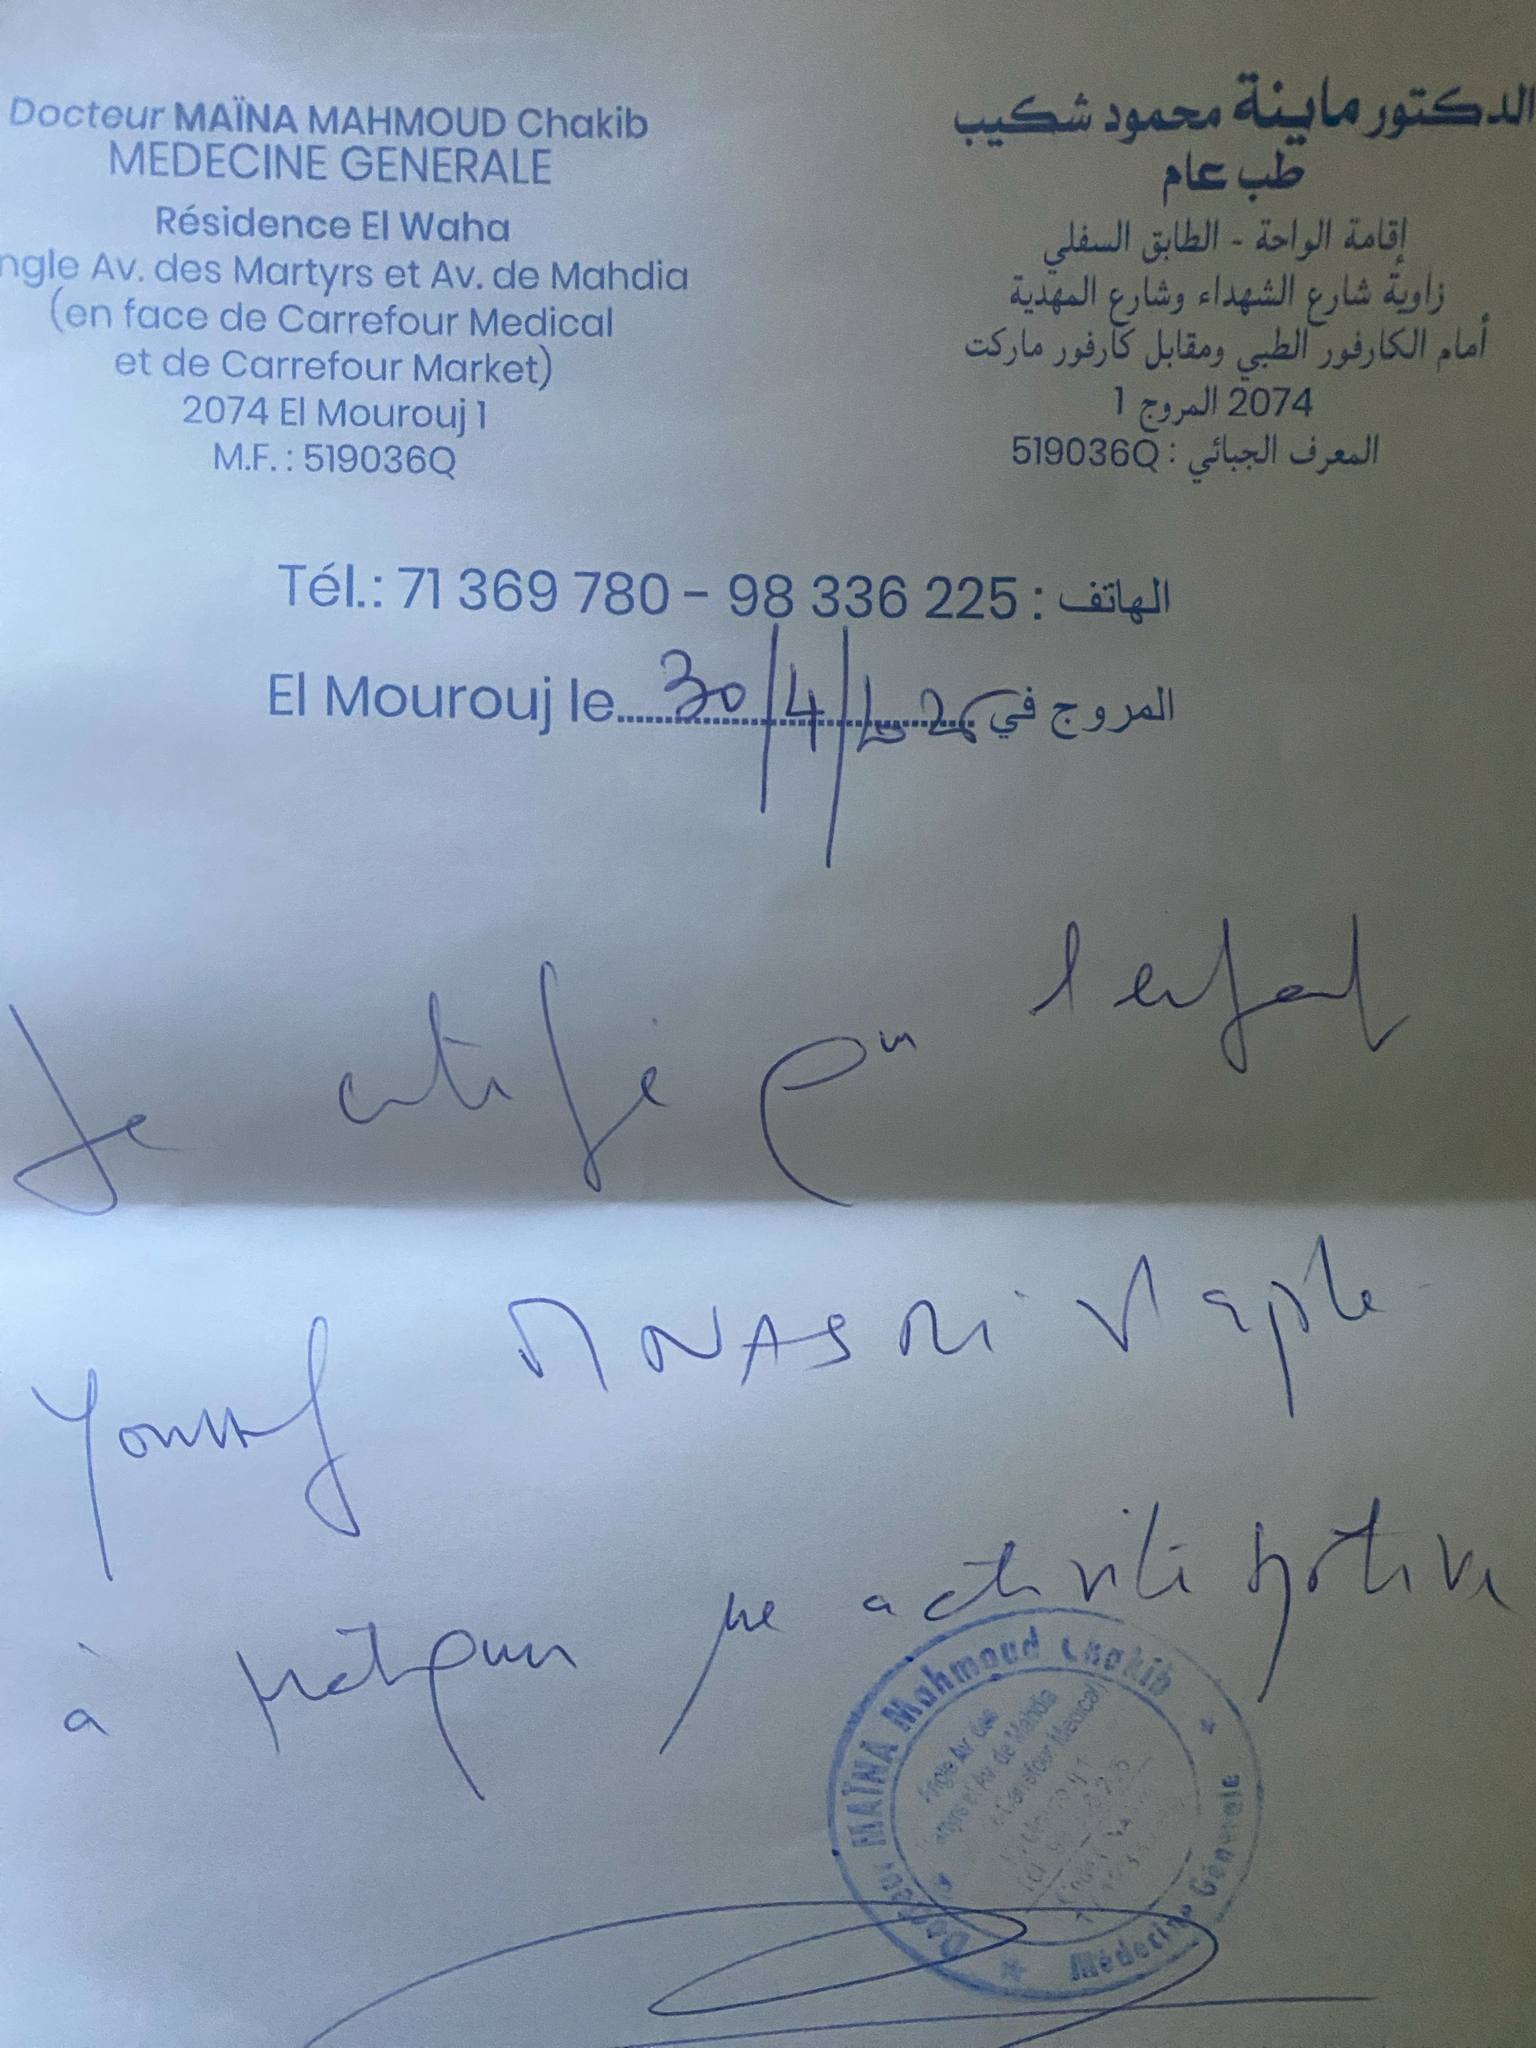 Docteur MAÏNA MAHMOUD Chakib
MEDECINE GENERALE
Résidence El Waha
ngle Av. des Martyrs et Av. de Mahdia
(en face de Carrefour Medical
et de Carrefour Market)
2074 El Mourouj 1
M.F. : 519036Q
الدكتور ماينة محمود شكيب
طب عام
إقامة الواحة - الطابق السفلي
زاوية شارع الشهداء وشارع المهدية
أمام الكارفور الطبي ومقابل كارفور ماركت
2074 المروج 1
المعرف الجبائي : 519036Q
Tél.: 71 369 780 - 98 336 225 : الهاتف
El Mourouj le 30/4/ المروج في
Je certifie que l'enfant
Youssef MNASRI est apte
à pratiquer une activité sportive
Docteur MAÏNA Mahmoud Chakib
Médecine Générale
Angle Av. des
Martyrs et Av. de Mahdia
Carrefour Medical)